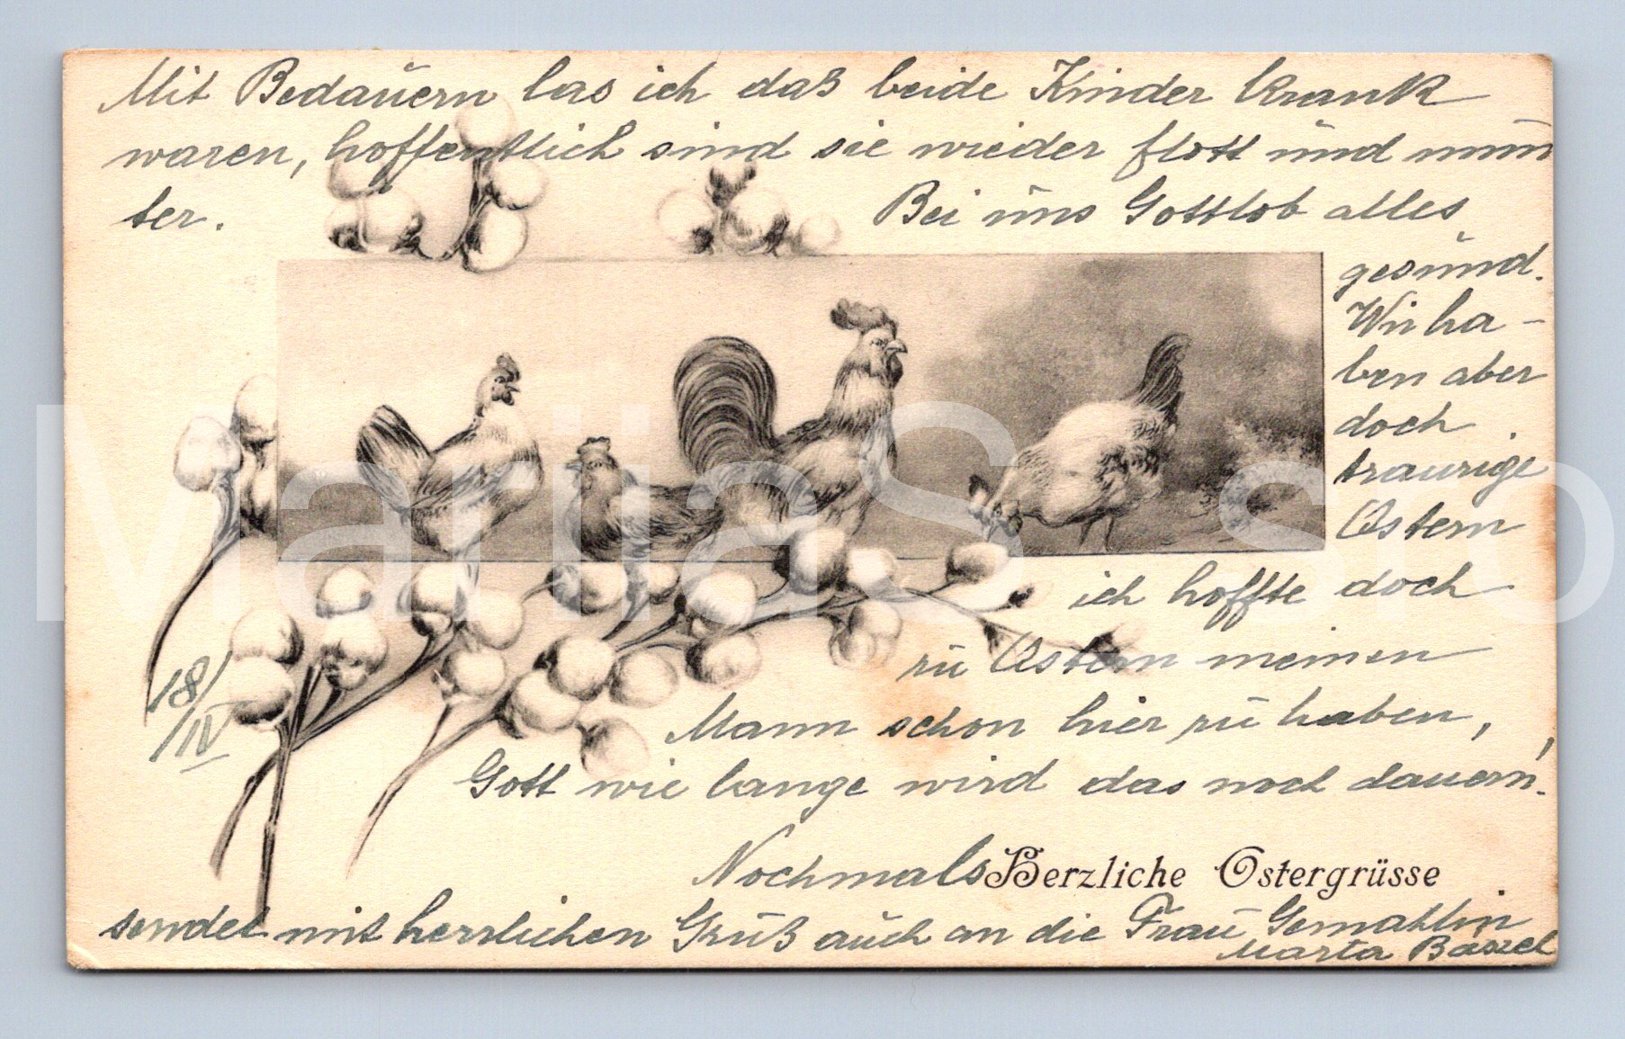 Mit Bedauern las ich daß beide Kinder krank
waren, hoffentlich sind sie wieder flott und mun
ter. Bei uns Gottlob alles
gesund.
Wir ha-
ben aber
doch
traurige
Ostern
ich hoffte doch
zu Ostern meinen
Mann schon hier zu haben,
Gott wie lange wird das noch dauern!
18/IV
Nochmals Herzliche Ostergrüsse
sendet mit herzlichen Gruß auch an die Frau Gemahlin
Marta